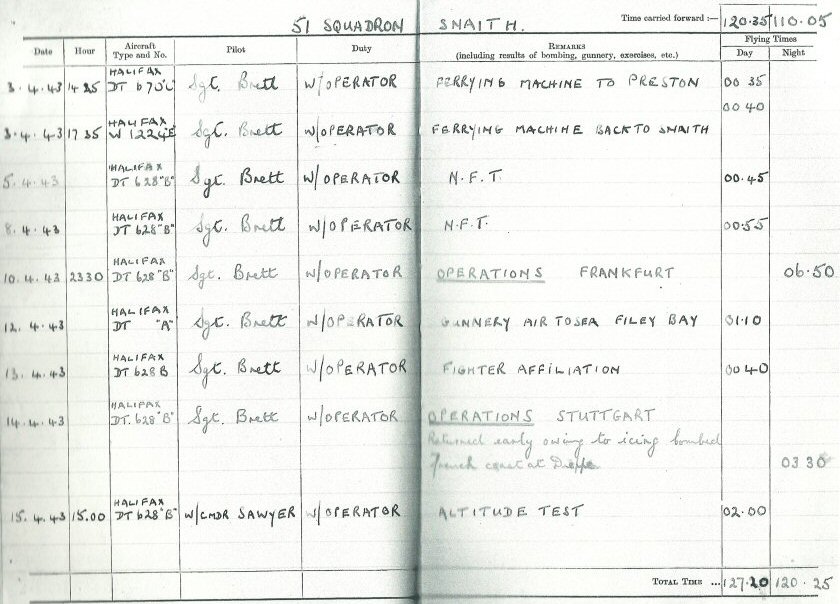 51 SQUADRON SNAITH. Time carried forward :— 120.35 110.05
Date Hour Aircraft Type and No. Pilot Duty REMARKS (including results of bombing, gunnery, exercises, etc.) Flying Times Day Night
3.4.43 1425 HALIFAX DT 670 Sgt. Brett W/OPERATOR FERRYING MACHINE TO PRESTON 00 35
00 40
3.4.43 1735 HALIFAX W 1224 E Sgt. Brett W/OPERATOR FERRYING MACHINE BACK TO SNAITH
5.4.43 HALIFAX DT 628 "B" Sgt. Brett W/OPERATOR N.F.T. 00.45
8.4.43 HALIFAX DT 628 "B" Sgt. Brett W/OPERATOR N.F.T. 00.55
10.4.43 2330 HALIFAX DT 628 "B" Sgt. Brett W/OPERATOR OPERATIONS FRANKFURT 06.50
12.4.43 HALIFAX DT "A" Sgt. Brett W/OPERATOR GUNNERY AIR TO SEA FILEY BAY 01.10
13.4.43 HALIFAX DT 628 B Sgt. Brett W/OPERATOR FIGHTER AFFILIATION 00 40
14.4.43 HALIFAX DT. 628 "B" Sgt. Brett W/OPERATOR OPERATIONS STUTTGART
Returned early owing to icing bombed
French coast at Dieppe 03 30
15.4.43 15.00 HALIFAX DT 628 "B" W/CMDR SAWYER W/OPERATOR ALTITUDE TEST 02.00
TOTAL TIME ... 127.20 120.25